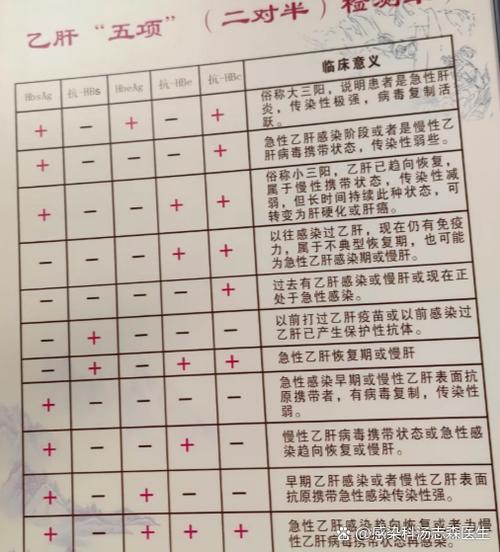 乙肝“五项”（二对半）检测
HbsAg 抗-HBs HbeAg 抗-HBe 抗-HBc 临床意义
+ − + − + 俗称大三阳，说明患者是急性肝
炎，传染性极强，病毒复制活
跃。
+ − − − + 急性乙肝感染阶段或者是慢性乙
肝病毒携带状态，传染性弱些。
+ − − + + 俗称小三阳，乙肝已趋向恢复，
属于慢性携带状态，传染性减
弱，但长时间持续此种状态，可
转变为肝硬化或肝癌。
− − − + + 以往感染过乙肝，现在仍有免疫
力，属于不典型恢复期，也可能
为急性乙肝感染期或慢肝。
− − − − + 过去有乙肝感染或慢肝或现在正
处于急性感染。
− + − − − 以前打过乙肝疫苗或以前感染过
乙肝已产生保护性抗体。
− + − + + 急性乙肝恢复期或慢肝
+ − − − − 急性感染早期或慢性乙肝表面抗
原携带者，有病毒复制，传染性
弱。
+ − − + − 慢性乙肝病毒携带状态或急性感
染趋向恢复或慢肝。
+ − + − − 早期乙肝感染或者慢性乙肝表面
抗原携带急性感染传染性强。
+ − + + + 急性乙肝感染趋向恢复或者为慢
性乙肝携带状态再感染。
@感染科汤志森医生